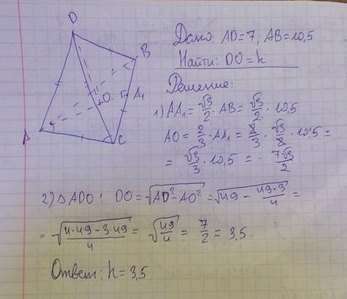 D
B
A₁
O
A
C
Дано AD=7, AB=10,5
Найти: DO=h
Решение:
1) AA₁ = √3/2 · AB = √3/2 · 10,5
AO = 2/3 · AA₁ = 2/3 · √3/2 · 10,5 =
= √3/3 · 10,5 = 7√3/2
2) △ADO: DO = √(AD² - AO²) = √(49 - 49·3/4) =
= √((4·49 - 3·49)/4) = √(49/4) = 7/2 = 3,5
Ответ: h = 3,5